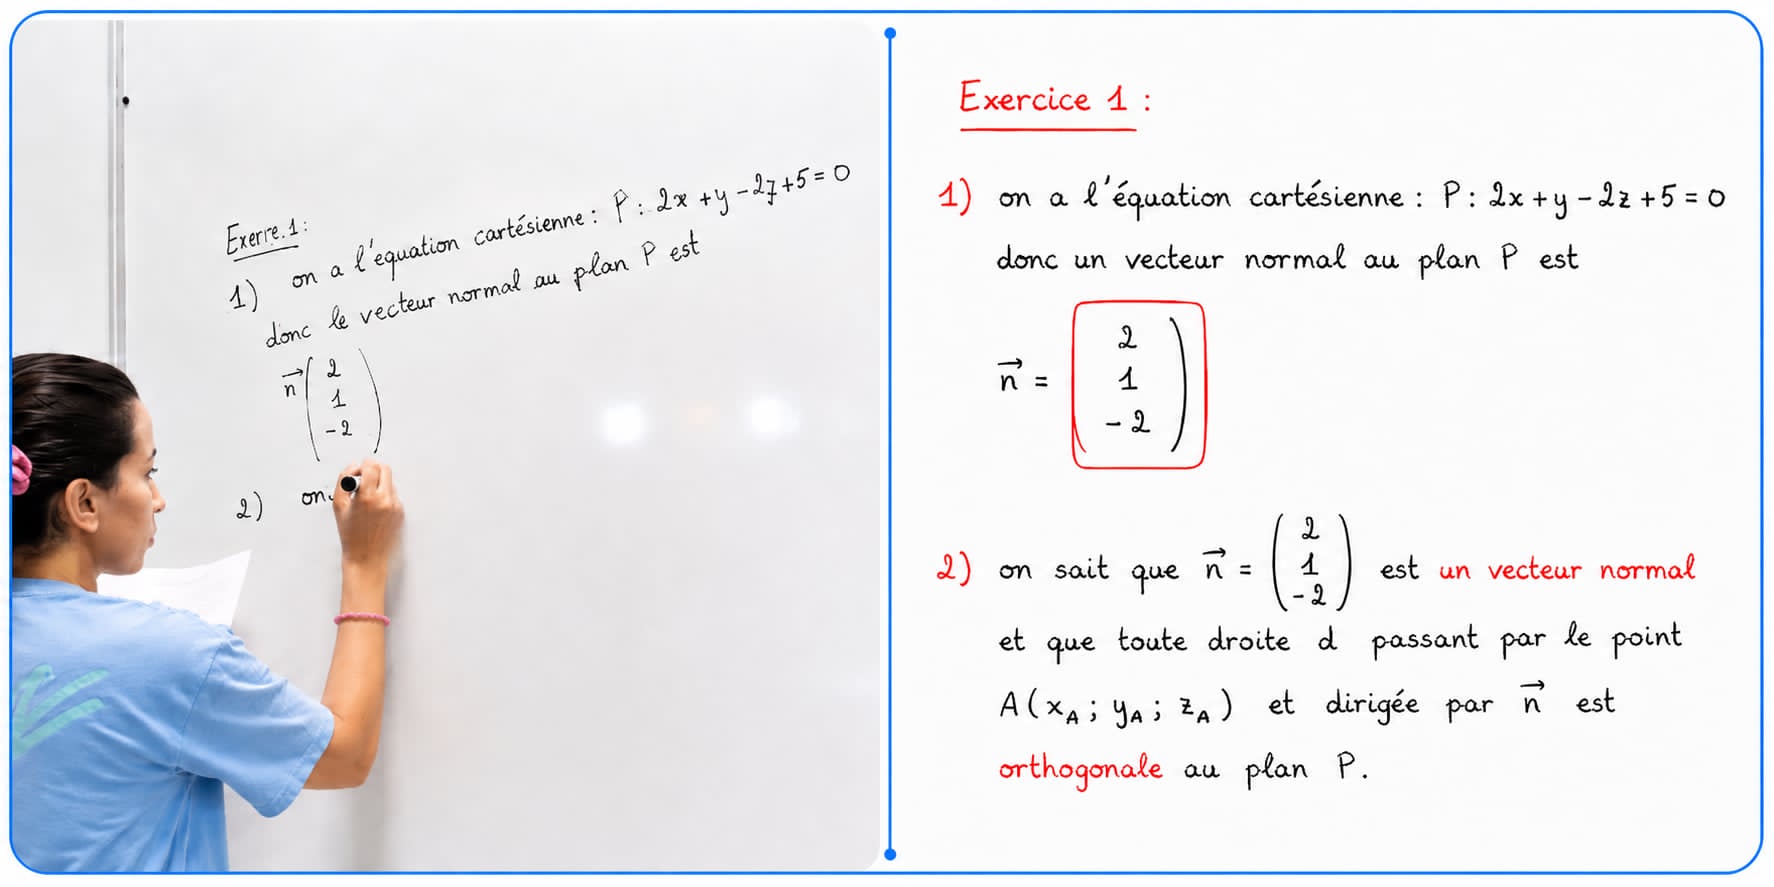 Exerre.1:
1) on a l'équation cartésienne : P : 2x + y - 2z + 5 = 0
donc le vecteur normal au plan P est
n⃗ ( 2
1
-2 )
2) on
Exercice 1 :
1) on a l'équation cartésienne : P : 2x + y - 2z + 5 = 0
donc un vecteur normal au plan P est
n⃗ = ( 2
1
-2 )
2) on sait que n⃗ = ( 2 1 -2 ) est un vecteur normal
et que toute droite d passant par le point
A(x_A ; y_A ; z_A) et dirigée par n⃗ est
orthogonale au plan P.